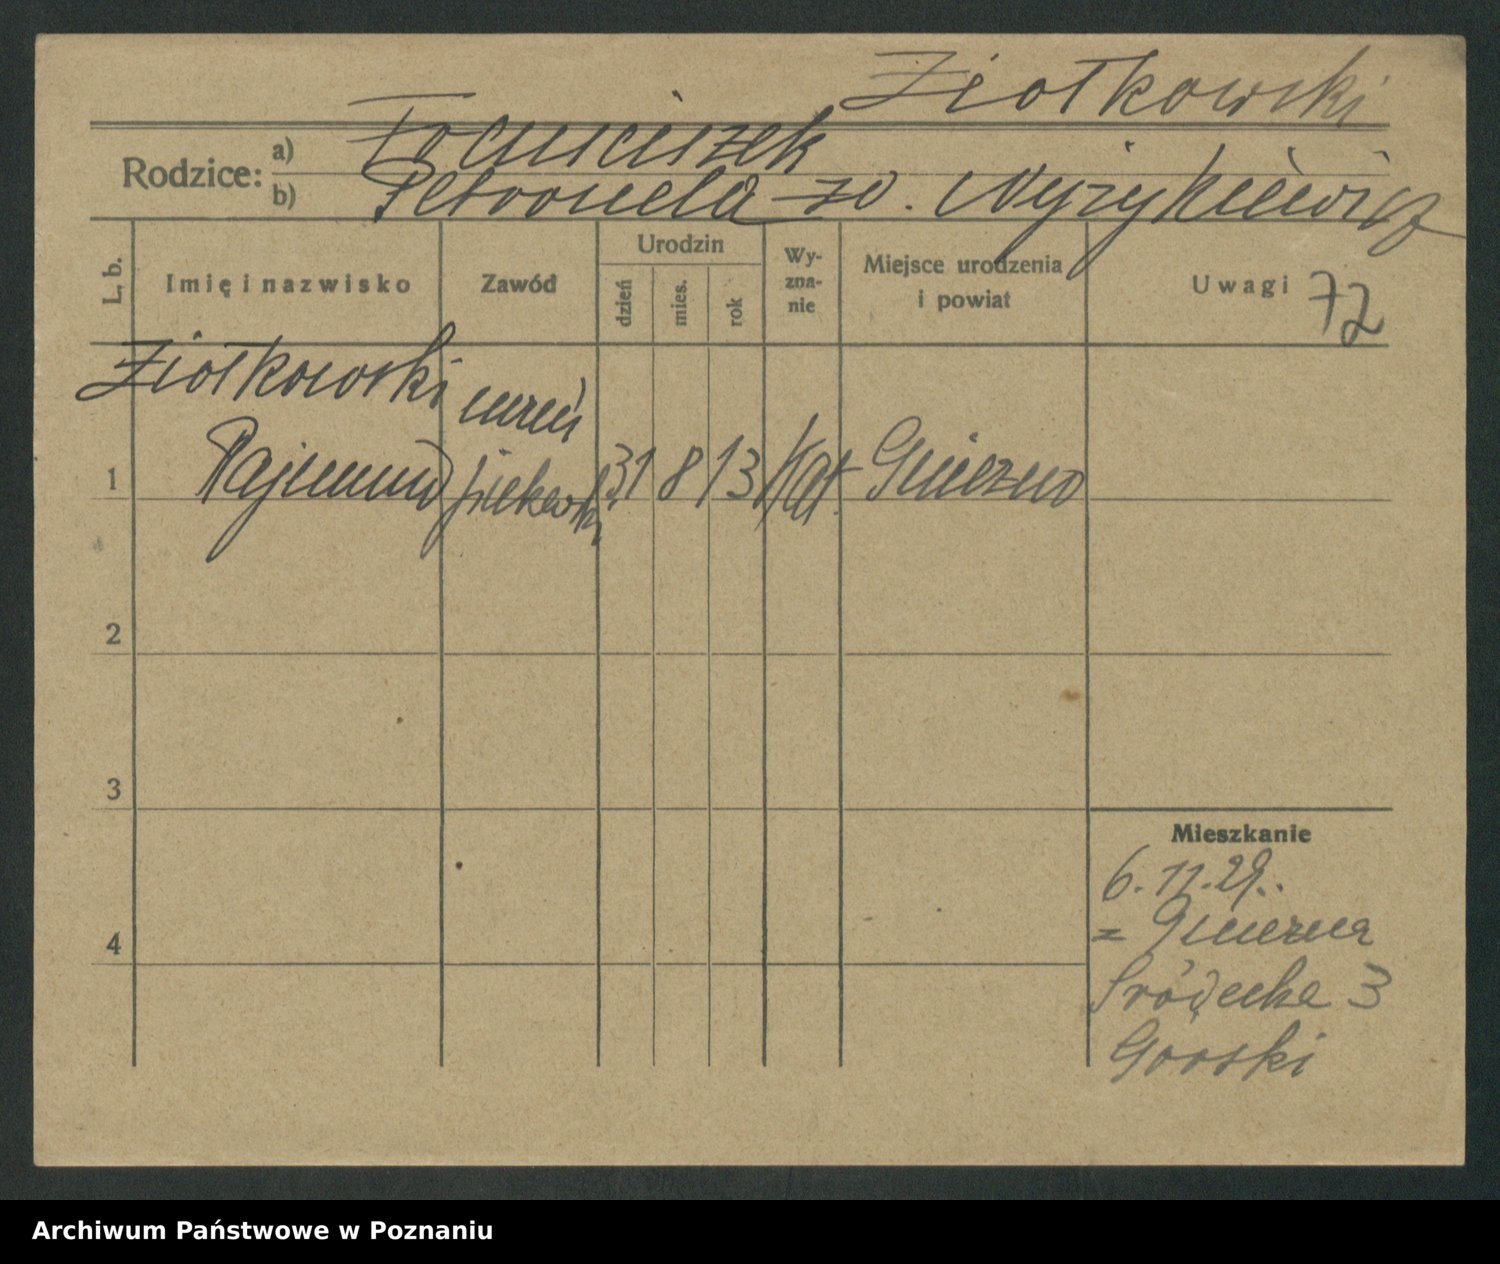 Ziołkowski
Rodzice: a) Franciszek
b) Petronela zd. Wyżykiewicz
L. b. Imię i nazwisko Zawód Urodzin dzień mies. rok Wyznanie Miejsce urodzenia i powiat Uwagi 72
Ziołkowski uczeń
1 Rajmund 31 8 13 Kat. Gniezno
2
3
Mieszkanie
6.11.29.
4 = Gniezna
Śródecka 3
Gorski
Archiwum Państwowe w Poznaniu